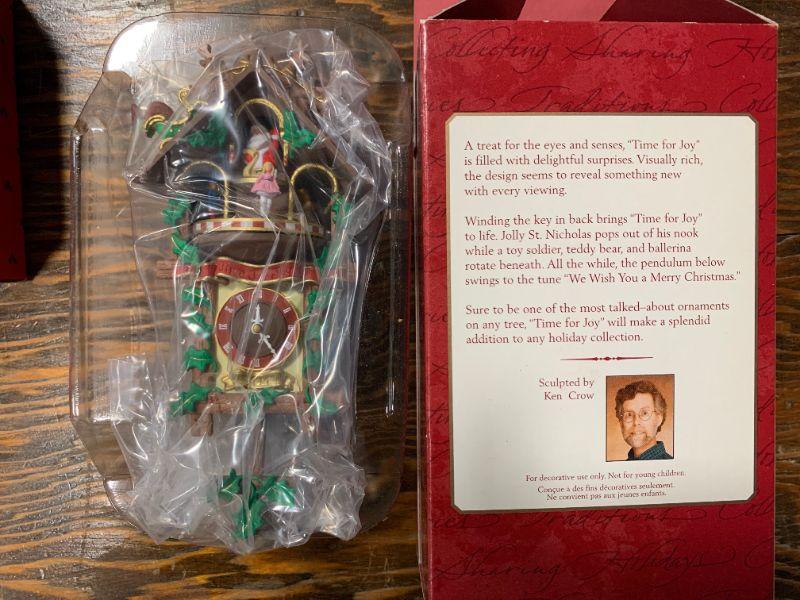 Collecting Sharing
Traditions
A treat for the eyes and senses, "Time for Joy"
is filled with delightful surprises. Visually rich,
the design seems to reveal something new
with every viewing.
Winding the key in back brings "Time for Joy"
to life. Jolly St. Nicholas pops out of his nook
while a toy soldier, teddy bear, and ballerina
rotate beneath. All the while, the pendulum below
swings to the tune "We Wish You a Merry Christmas."
Sure to be one of the most talked–about ornaments
on any tree, "Time for Joy" will make a splendid
addition to any holiday collection.
Sculpted by
Ken Crow
For decorative use only. Not for young children.
Conçue à des fins décoratives seulement.
Ne convient pas aux jeunes enfants.
Sharing Holidays